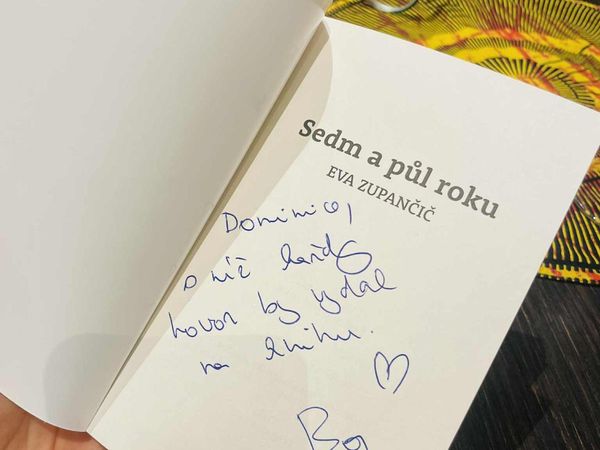 Sedm a půl roku
EVA ZUPANČIČ
Dominice,
s níž každý
hovor by vydal
na knihu.